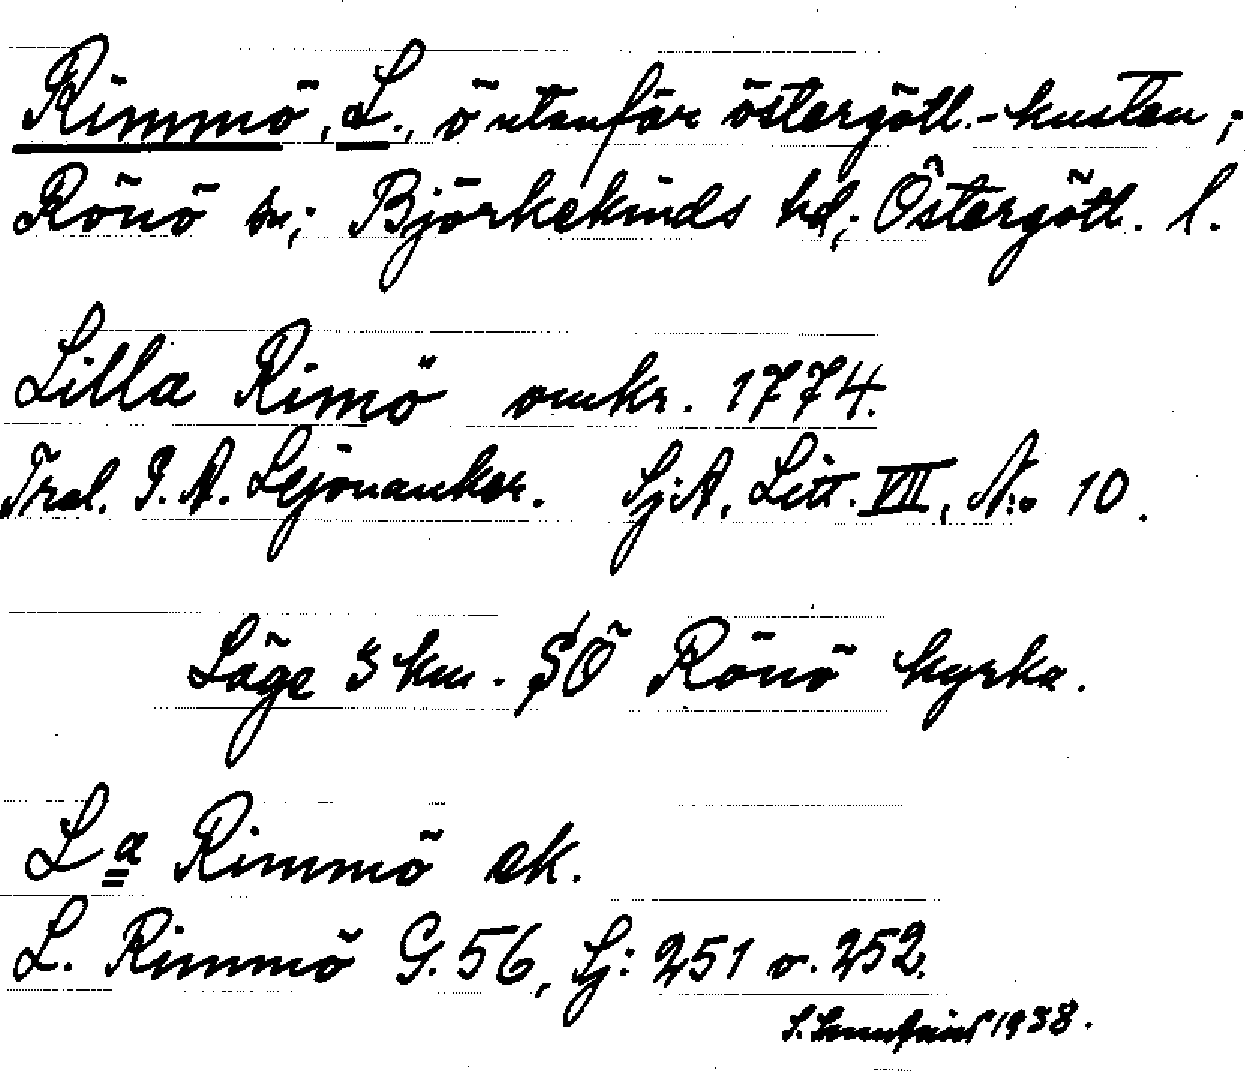 Rimmö, L., ö utanför östergötl.-kusten,
Rönö sn; Björkekinds hd; Östergötl. l.
Lilla Rimö omkr. 1774.
Tral. J. A. Lejonanker. Sj:A, Litt. VII, N:o 10.
Läge 3 km. SÖ Rönö kyrka.
La Rimmö ek.
L. Rimmö G. 56, Sj: 251 o. 252.
S. 1938.